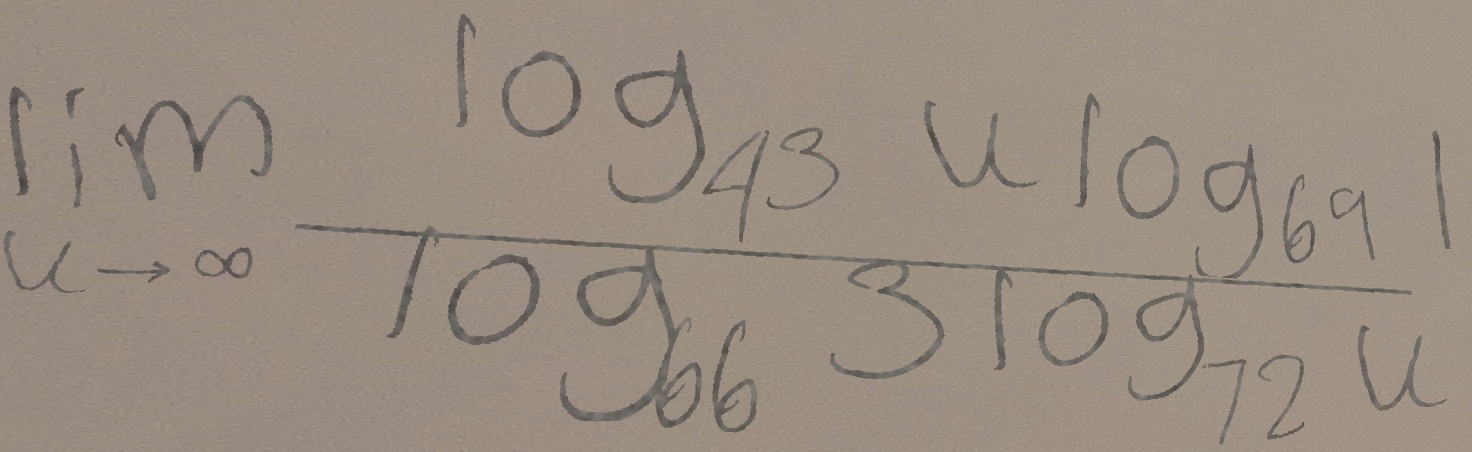 \lim_{u \to \infty} \frac{\log_{43} u \log_{69} 1}{\log_{66} 3 \log_{72} u}